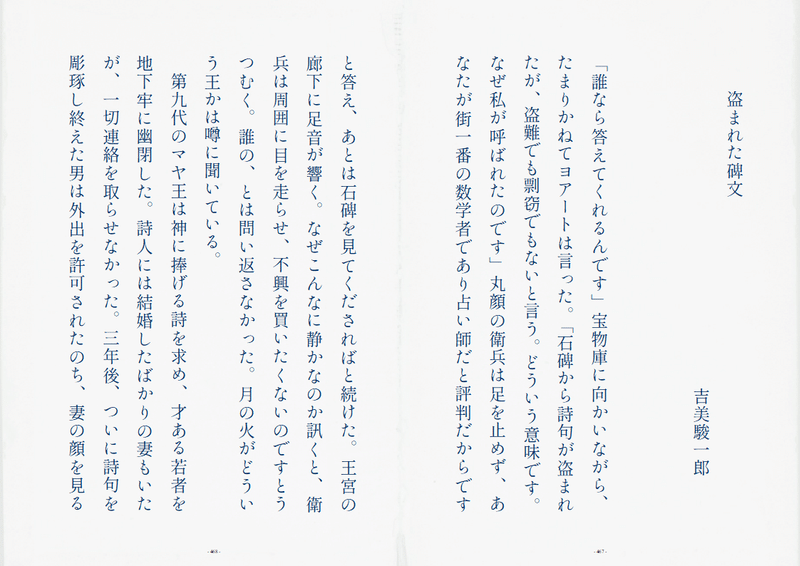 盗まれた碑文
吉美駿一郎
「誰なら答えてくれるんです」宝物庫に向かいながら、
たまりかねてヨアートは言った。「石碑から詩句が盗まれ
たが、盗難でも剽窃でもないと言う。どういう意味です。
なぜ私が呼ばれたのです」丸顔の衛兵は足を止めず、あ
なたが街一番の数学者であり占い師だと評判だからです
と答え、あとは石碑を見てくださればと続けた。王宮の
廊下に足音が響く。なぜこんなに静かなのか訊くと、衛
兵は周囲に目を走らせ、不興を買いたくないのですとう
つむく。誰の、とは問い返さなかった。月の火がどうい
う王かは噂に聞いている。
第九代のマヤ王は神に捧げる詩を求め、才ある若者を
地下牢に幽閉した。詩人には結婚したばかりの妻もいた
が、一切連絡を取らせなかった。三年後、ついに詩句を
彫琢し終えた男は外出を許可されたのち、妻の顔を見る